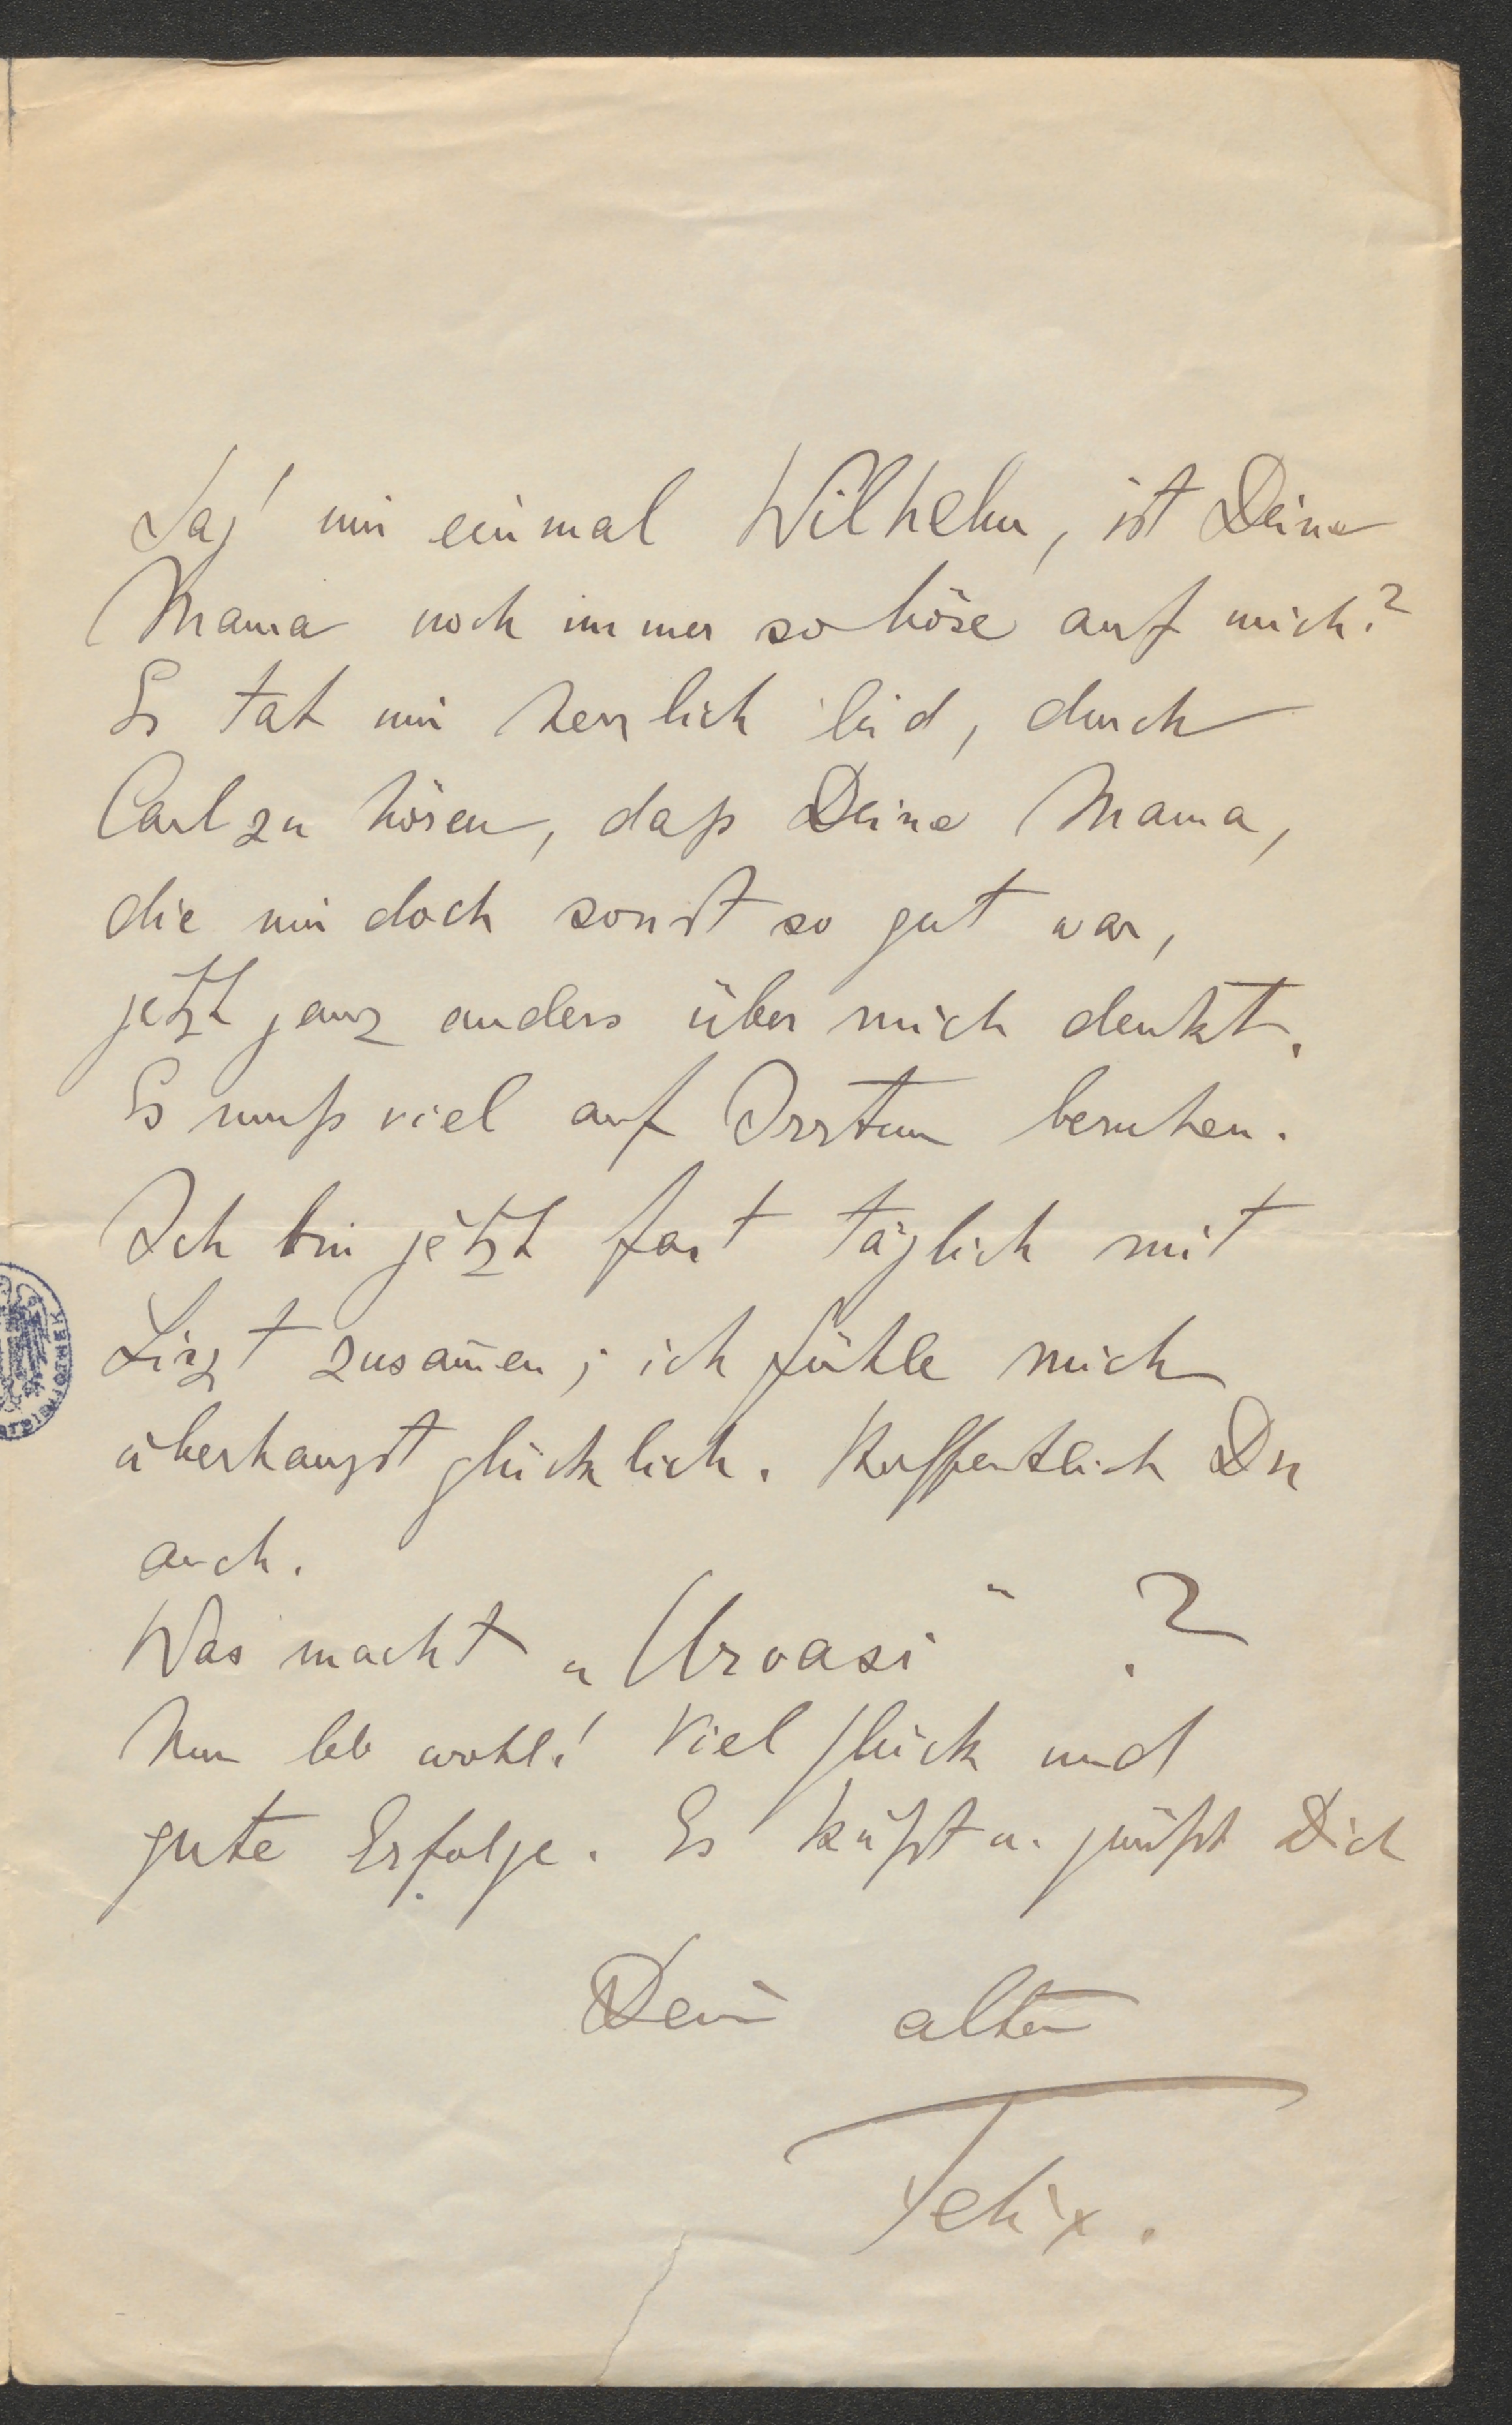 Sag' mir einmal Wilhelm, ist Deine
Mama noch immer so böse auf mich?
Es tat mir herzlich leid, durch
Carl zu hören, daß Deine Mama,
die mir doch sonst so gut war,
jetzt ganz anders über mich denkt.
Es muß viel auf Irrtum beruhen.
Ich bin jetzt fast täglich mit
Liszt zusam̄en; ich fühle mich
überhaupt glücklich. Hoffentlich Du
auch.
Was macht „Urvasi“ ?
Nun leb wohl! Viel Glück und
gute Erfolge. Es küßt u. grüßt Dich
Dein alter
Felix.